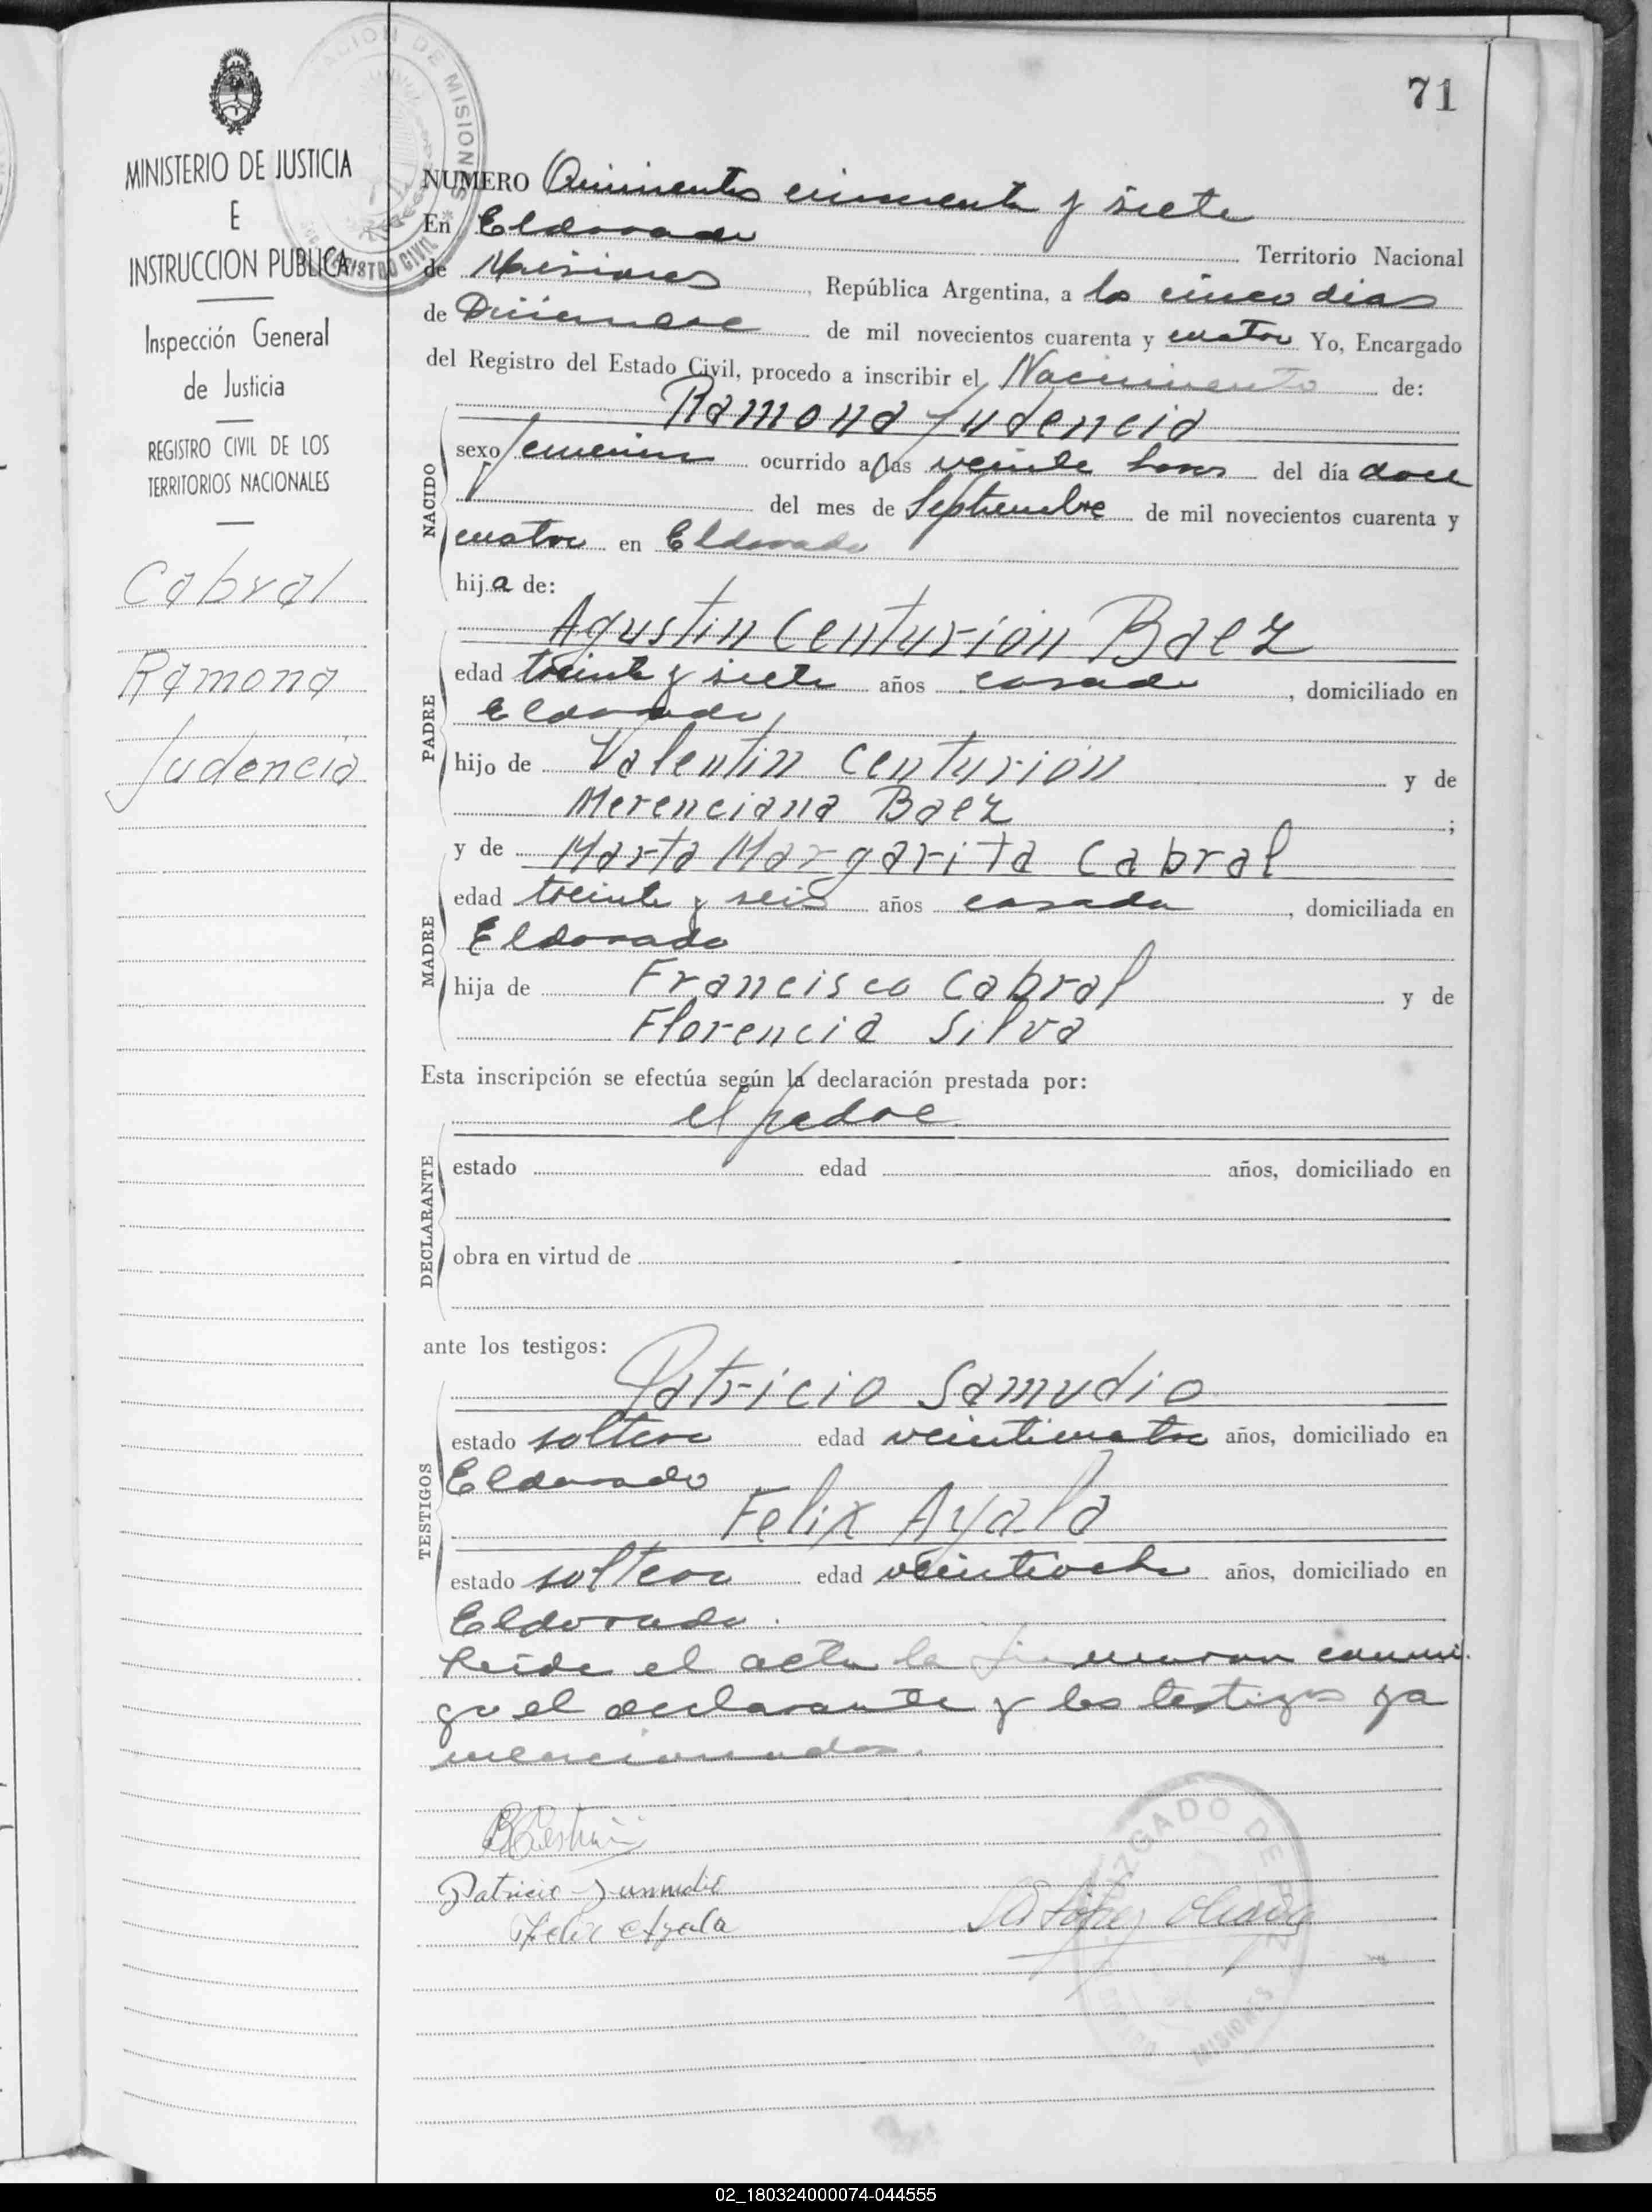 71
MINISTERIO DE JUSTICIA
E
INSTRUCCION PUBLICA
Inspección General
de Justicia
REGISTRO CIVIL DE LOS
TERRITORIOS NACIONALES
Cabral
Ramona
Judencia
NUMERO Quinientos cincuenta y siete
En Eldorado Territorio Nacional
de Misiones, República Argentina, a los cinco dias
de Diciembre de mil novecientos cuarenta y cuatro Yo, Encargado
del Registro del Estado Civil, procedo a inscribir el Nacimiento de:
Ramona Judencia
NACIDO
sexo femenino ocurrido a las veinte horas del día doce
del mes de Septiembre de mil novecientos cuarenta y
cuatro en Eldorado
hija de:
PADRE
Agustin Centurión Baez
edad treinta y siete años casado, domiciliado en
Eldorado,
hijo de Valentin Centurión y de
Merenciana Baez;
MADRE
y de Marta Margarita Cabral
edad treinta y seis años casada, domiciliada en
Eldorado
hija de Francisco Cabral y de
Florencia Silva
Esta inscripción se efectúa según la declaración prestada por:
el padre
DECLARANTE
estado edad años, domiciliado en
obra en virtud de
ante los testigos:
TESTIGOS
Patricio Samudio
estado soltero edad veinticuatro años, domiciliado en
Eldorado
Felix Ayala
estado soltero edad veintiocho años, domiciliado en
Eldorado.
Leida el acta la firmaron conmi
go el declarante y los testigos ya
mencionados.
Patricio Samudio
Felix Ayala
JUZGADO DE PAZ
MISIONES
02_180324000074-044555